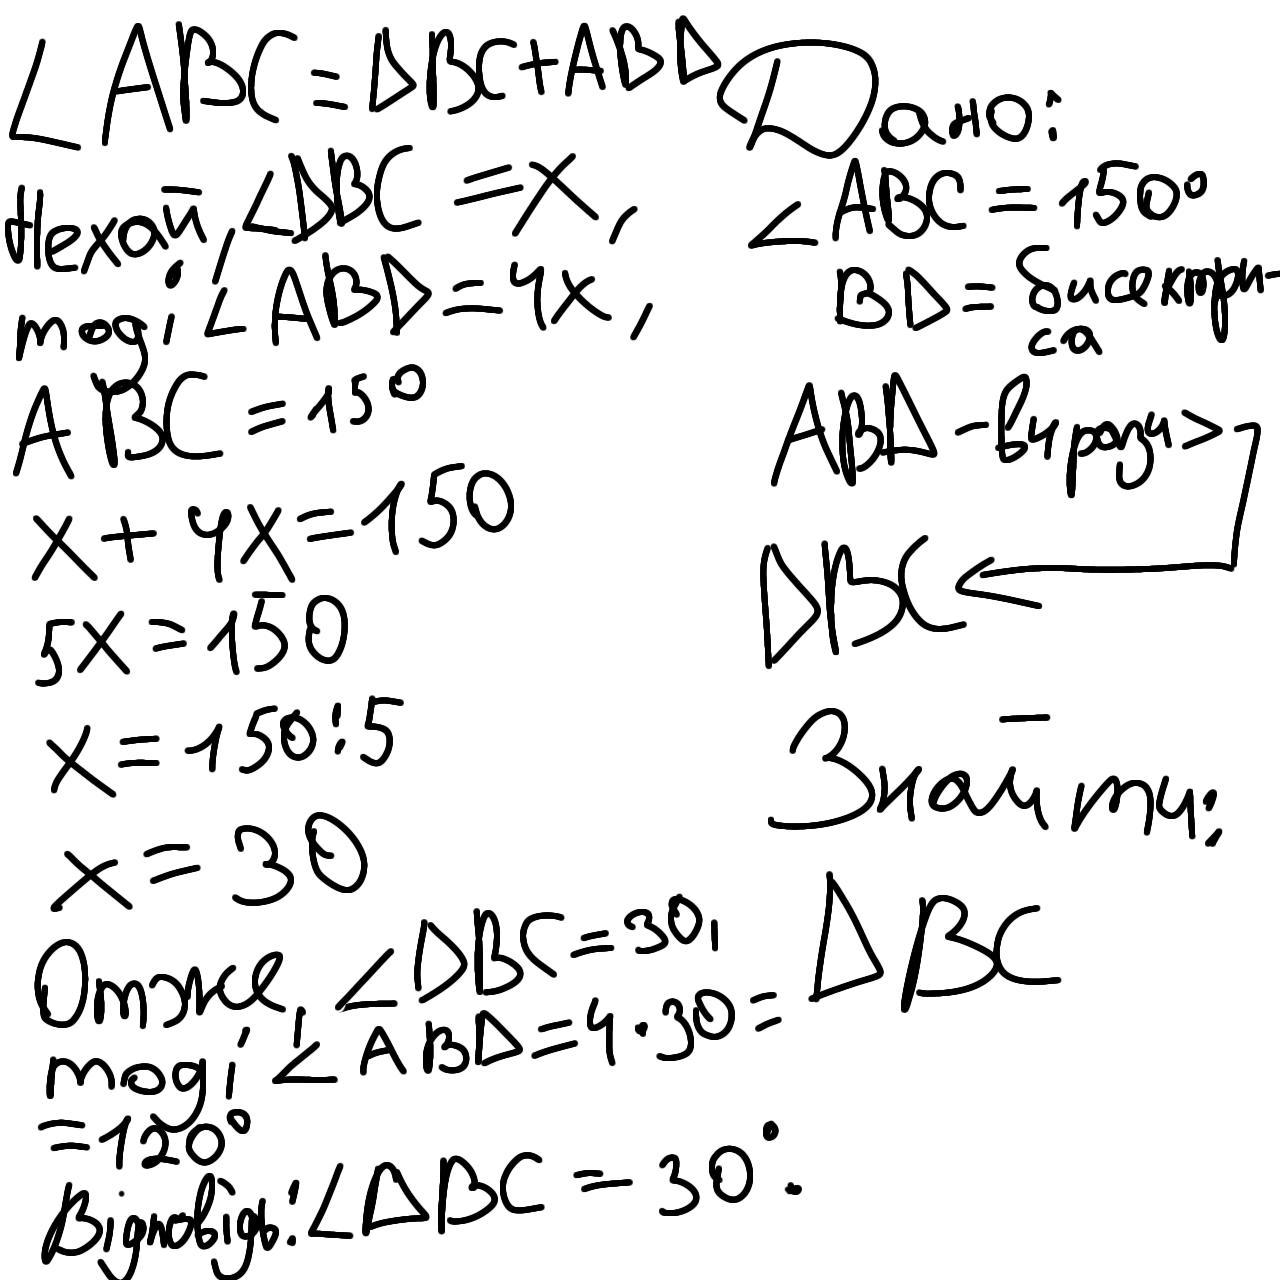 ∠ABC=DBC+ABD
Нехай, ∠DBC=x,
тоді ∠ABD=4x,
ABC=150
x+4x=150
5x=150
x=150:5
x=30
Отже, ∠DBC=30,
тоді, ∠ABD=4·30=
=120°
Відповідь: ∠DBC=30°.
Дано:
∠ABC=150°
BD=бисектри-
са
ABD-в 4 рази>
DBC
Знайти:
DBC